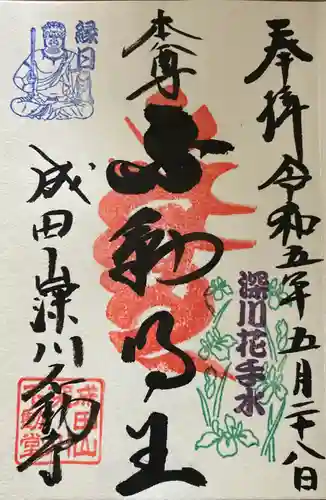 奉拝 令和五年五月二十八日
深川花手水
本尊
不動明王
縁日
成田山深川不動寺
成田山